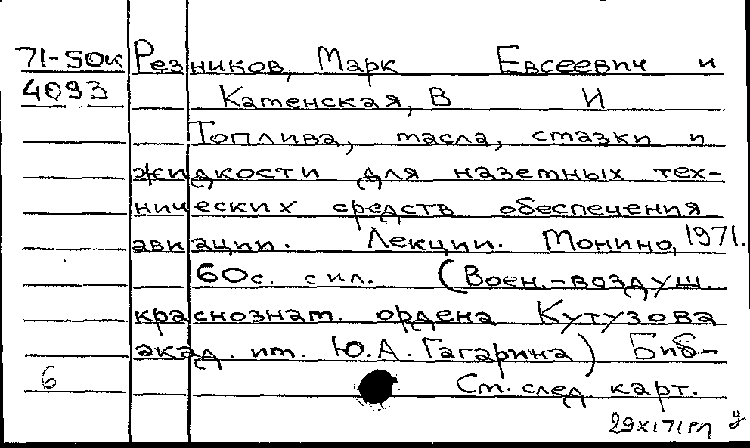 71-50к Резников, Марк Евсеевич и
4093 Катенская, В И
Топлива, масла, смазки и
жидкости для наземных тех-
нических средств обеспечения
авиации. Лекции. Монино, 1971.
60с. с ил. (Воен.-воздуш.
краснознам. ордена Кутузова
акад. им. Ю.А. Гагарина) Биб-
6 См. след. карт.
29 XI 71 рл